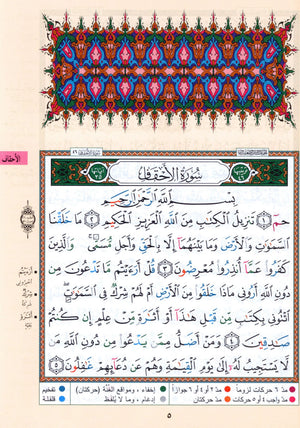 سُورَةُ الأَحْقَافِ
بِسْمِ اللَّهِ الرَّحْمَٰنِ الرَّحِيمِ
حمٓ ١ تَنزِيلُ الْكِتَٰبِ مِنَ اللَّهِ الْعَزِيزِ الْحَكِيمِ ٢ مَا خَلَقْنَا
السَّمَٰوَٰتِ وَالْأَرْضَ وَمَا بَيْنَهُمَآ إِلَّا بِالْحَقِّ وَأَجَلٍ مُّسَمًّى وَالَّذِينَ
كَفَرُوا عَمَّآ أُنذِرُوا مُعْرِضُونَ ٣ قُلْ أَرَءَيْتُم مَّا تَدْعُونَ مِن
دُونِ اللَّهِ أَرُونِي مَاذَا خَلَقُوا مِنَ الْأَرْضِ أَمْ لَهُمْ شِرْكٌ فِي السَّمَٰوَٰتِ
ائْتُونِي بِكِتَٰبٍ مِّن قَبْلِ هَٰذَآ أَوْ أَثَٰرَةٍ مِّنْ عِلْمٍ إِن كُنتُمْ
صَٰدِقِينَ ٤ وَمَنْ أَضَلُّ مِمَّن يَدْعُوا مِن دُونِ اللَّهِ مَن
لَّا يَسْتَجِيبُ لَهُٓ إِلَىٰ يَوْمِ الْقِيَٰمَةِ وَهُمْ عَن دُعَآئِهِمْ غَٰفِلُونَ ٥
الأحقاف
مدّ ٦ حركات لزوماً مدّ ٢ أو ٤ أو ٦ جوازاً إخفاء، ومواقع الغنّة (حركتان) تفخيم
مدّ واجب ٤ أو ٥ حركات مدّ حركتان إدغام، وما لا يُلفظ قلقلة
٥